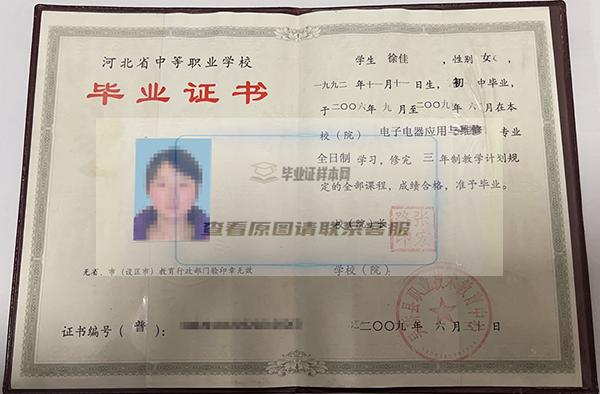 河北省中等职业学校
毕业证书
无省、市（设区市）教育行政部门验印章无效
证书编号（普）
学生 徐佳 ，性别 女 ，
一九九二 年十一月十一日生，初 中毕业，
于二〇〇六年 九 月至二〇〇九年 六 月在本
校（院） 电子电器应用与维修 专业
全日制 学习，修完 三 年制教学计划规
定的全部课程，成绩合格，准予毕业。
校（院）长
学校（院）
二〇〇九 年 六 月 三十 日
职业技术教育中心
毕业证样本网
查看原图请联系客服